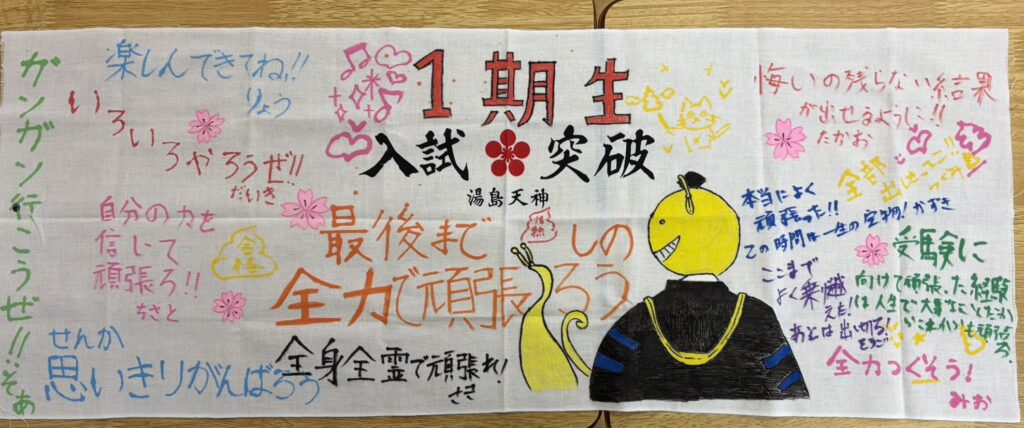 ガンガン行こうぜ!!
そあ
楽しんできてね!!
りょう
いろいろやろうぜ!!
だいき
自分の力を
信じて
頑張ろ!!
ちさと
合格
せんか
思いきりがんばろう
1期生
入試 突破
湯島天神
最後まで
しの
全力で頑張ろう
全身全霊で頑張れ!
さき
悔いの残らない結果
が出せるように!!
たかお
全部
本当によく
頑張った!!
この時間は一生の宝物! かずき
ここまで
よく乗り越
えた!
あとは出し切る!
受験に
向けて頑張った経験
は人生で大事な
頑張ろ
全力つくそう!
みお